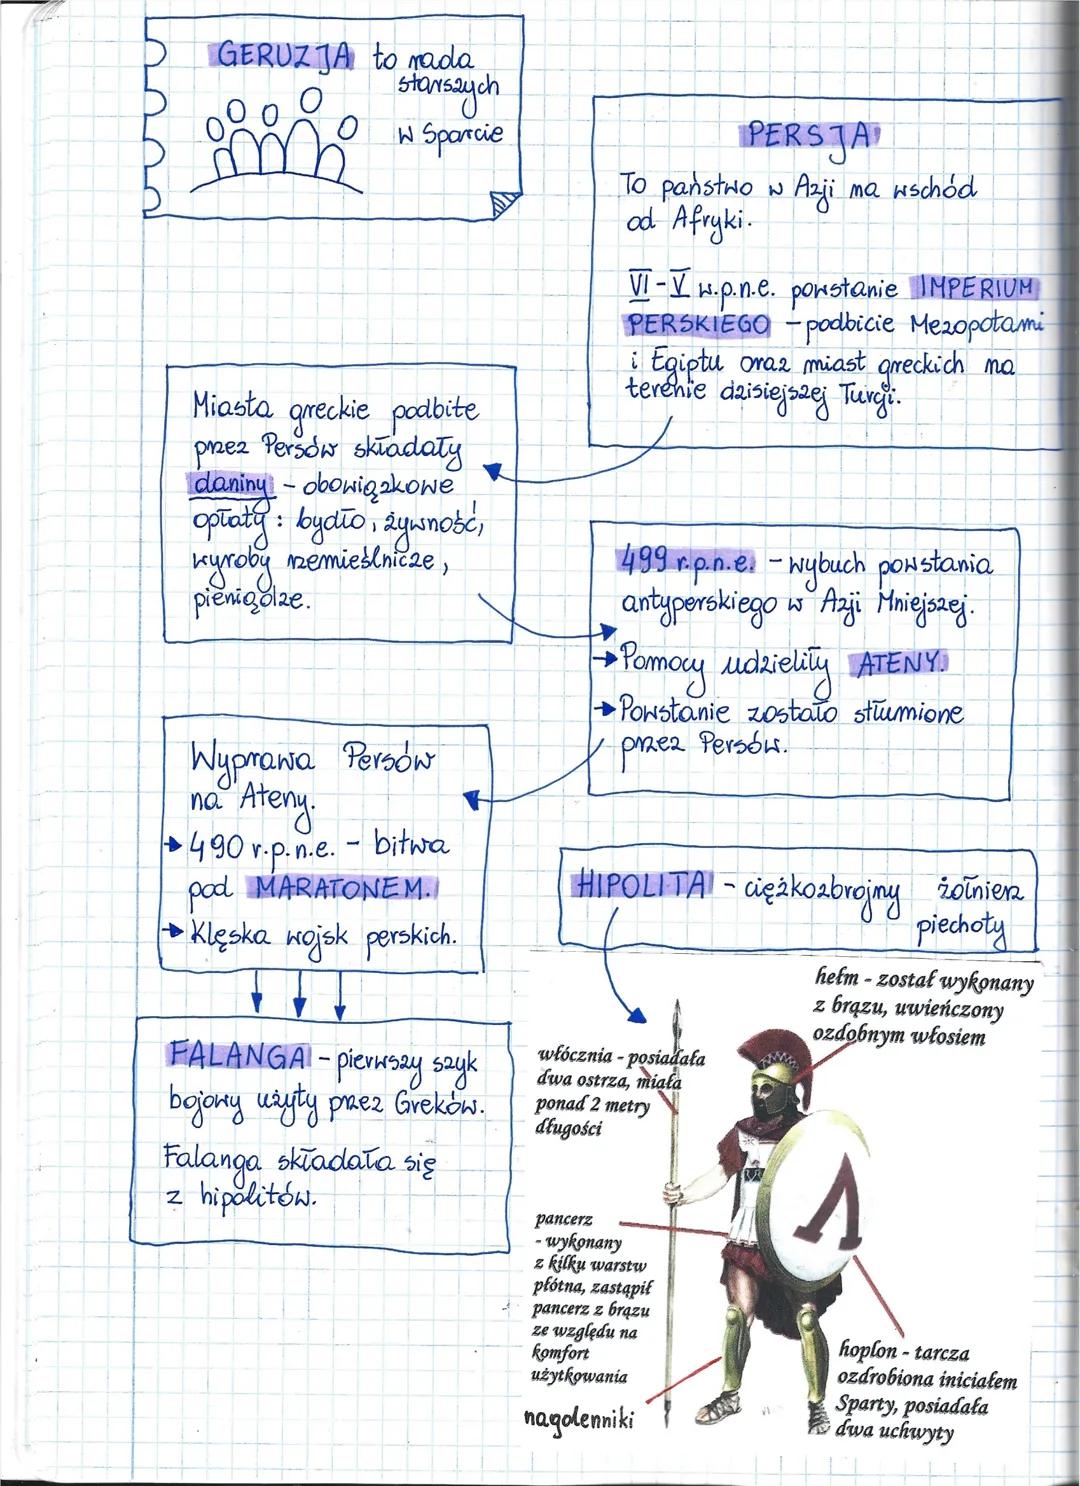 GERUZJA to rada
starszych
w Sparcie
PERSJA
To państwo w Azji na wschód
od Afryki.
VI-V w.p.n.e. powstanie IMPERIUM
PERSKIEGO - podbicie Mezopotami
i Egiptu oraz miast greckich na
terenie dzisiejszej Turcji.
Miasta greckie podbite
przez Persów składały
daniny - obowiązkowe
opłaty: bydło, żywność,
wyroby rzemieślnicze,
pieniądze.
499 r.p.n.e. - wybuch powstania
antyperskiego w Azji Mniejszej.
→ Pomocy udzieliły ATENY.
→ Powstanie zostało stłumione
przez Persów.
Wyprawa Persów
na Ateny.
→ 490 r.p.n.e. - bitwa
pod MARATONEM.
→ Klęska wojsk perskich.
HIPOLITA - ciężkozbrojny żołnierz
piechoty
FALANGA - pierwszy szyk
bojowy użyty przez Greków.
Falanga składała się
z hipolitów.
hełm - został wykonany
z brązu, uwieńczony
ozdobnym włosiem
włócznia - posiadała
dwa ostrza, miała
ponad 2 metry
długości
pancerz
- wykonany
z kilku warstw
płótna, zastąpił
pancerz z brązu
ze względu na
komfort
użytkowania
nagolenniki
hoplon - tarcza
ozdrobiona iniciałem
Sparty, posiadała
dwa uchwyty
Λ